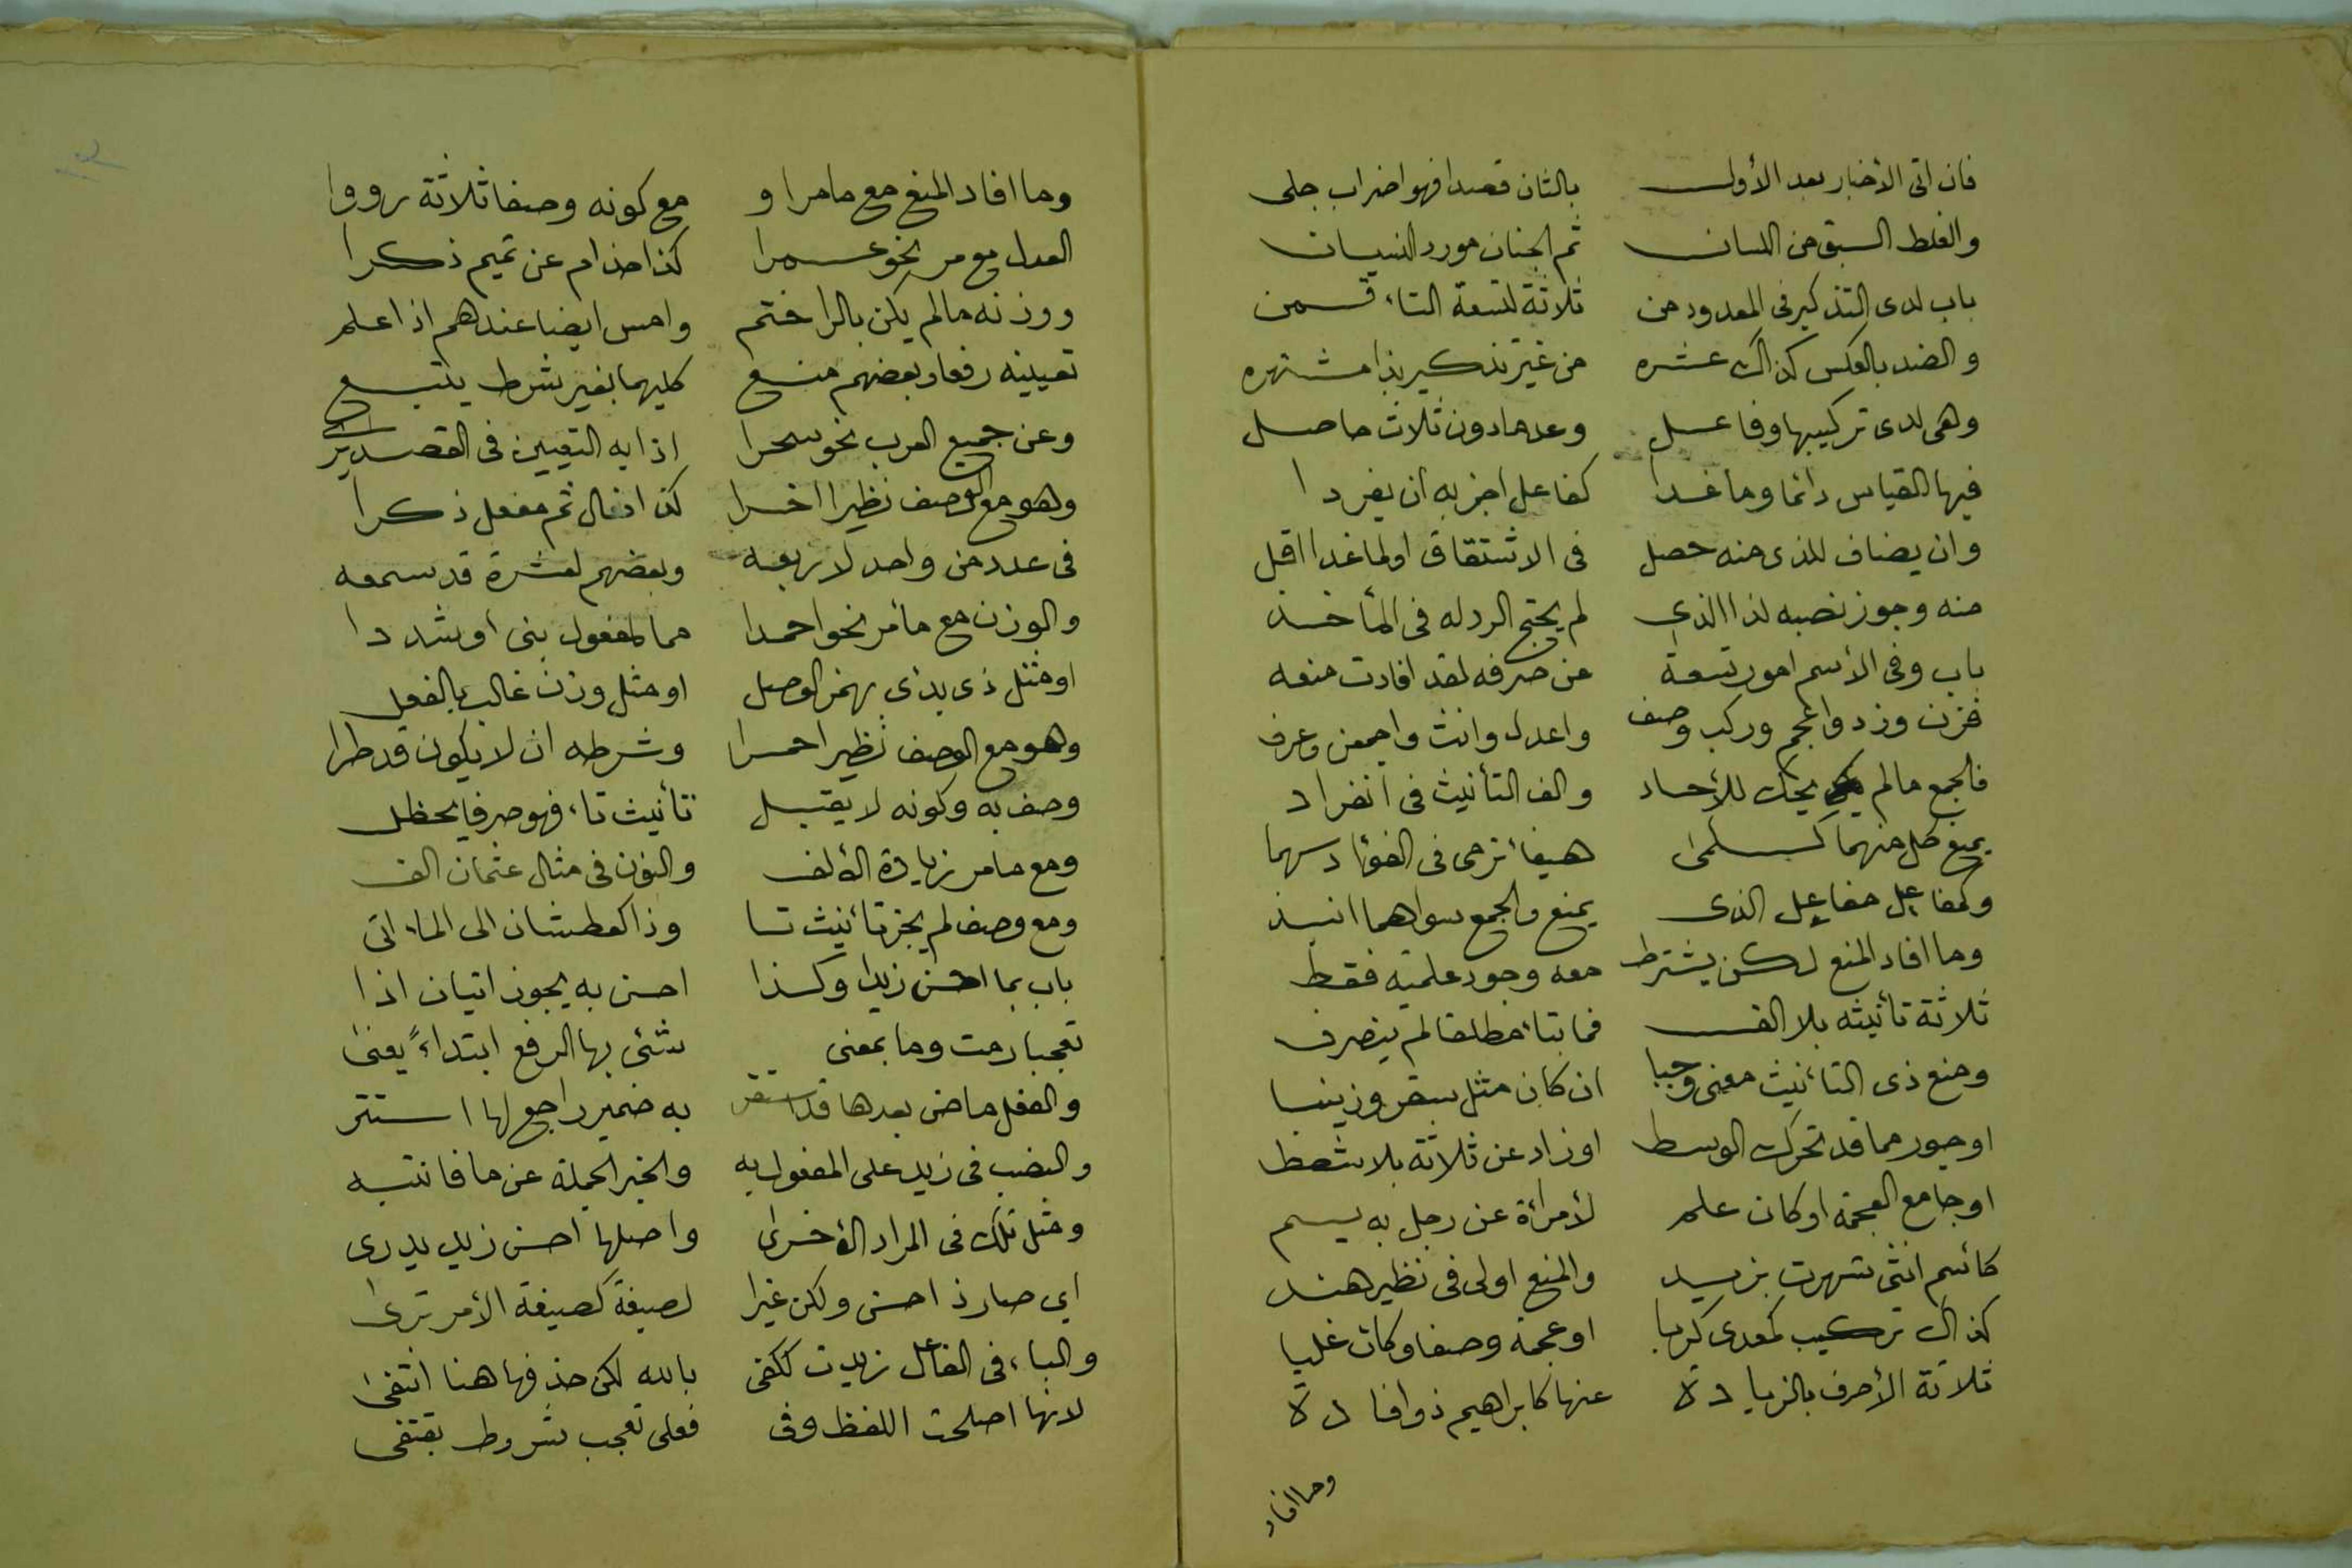 فان اتى الأخبار بعد الأول بالثان قصدا فهو اضراب جلى
والغلط السبق من اللسان ثم الجنان مورد النسيان
باب لدى التذكير فى المعدود من ثلاثة لتسعة التاء قمن
والضد بالعكس كذاك عشره من غير تذكير بذا مشتهره
وهى لدى تركيبها وفاعل وعدها دون ثلاث حاصل
فيها القياس دائما وما غدا كفاعل اجز به ان يفردا
وان يضاف للذى منه حصل فى الاشتقاق اولما غدا اقل
منه وجوز نصبه لذا الذى لم يحتج الرد له فى المأخذ
باب وفى الأسم امور تسعة من صرفه لقد افادت منعه
فزن وزد واعجم وركب وصف واعدل وانث واجمعن وعرف
فالجمع مالم يحك للأحاد والف التأنيث فى انفراد
يمنع كل منهما كسلمى هيفا ترمى فى الفؤاد سهما
وكمفاعل مفاعيل الذى يمنع والجمع سواهما انبذ
وما افاد المنع لكن يشترط معه وجود علمية فقط
ثلاثة تأنيثه بلا الف فما بتاء مطلقا لم ينصرف
ومنع ذى التأنيث معنى وجبا ان كان مثل سقر وزينبا
اوجور مما قد تحرك الوسط اوزاد عن ثلاثة بلا شطط
اوجامع العجمة اوكان علم لأمرأة عن رجل به يسم
كأسم انثى شهرت بزيد والمنع اولى فى نظير هند
كذاك تركيب كمعدى كربا اوعجمة وصفا وكان غلبا
ثلاثة الأحرف بالزيادة عنها كابراهيم ذو افادة
وما افاد
وما افاد المنع مع مامر او مع كونه وصفا ثلاثة رووا
العدل مع مر نحو عمرا كذا حذام عن تميم ذكرا
ووزنه مالم يكن بالرا ختم وامس ايضا عندهم اذا علم
تعيينه رفعا وبعضهم منع كليهما بغير شرط يتبع
وعن جميع العرب نحو سحرا اذا به التعيين فى القصد يرى
وهو مع الوصف نظير اخرا كذا فعال ثم مفعل ذكرا
فى عدد من واحد لاربعه وبعضهم لعشرة قد سمعه
والوزن مع مامر نحو احمدا مما لمفعول بنى اوشددا
اومثل ذى بدئ بهمز الوصل اومثل وزن غالب بالفعل
وهو مع الوصف نظير احمرا وشرطه ان لا يكون قد طرا
وصف به وكونه لا يقبل تأنيث تاء فهو صرفا يحظل
ومع مامر زيادة الألف والنون فى مثال عثمان الف
ومع وصف لم يجز تأنيث تا وذا كعطشان الى الماء اتى
باب بما احسن زيدا وكذا احسن به يجوز اتيان اذا
تعجبا رمت وما بمعنى شئى بها الرفع ابتداءً يعنى
والفعل ماض بعدها قد استقر به ضمير راجع لها استتر
والنصب فى زيد على المفعول به والخبر الجملة عن ما فانتبه
ومثل تلك فى المراد الأخرى واصلها احسن زيد يدرى
اي صار ذا حسن ولكن غيرا لصيغة كصيغة الأمر ترى
والباء فى الفاعل زيدت ككفى بالله لكن حذفها هنا انتفى
لانها اصلحت اللفظ وفى فعلى تعجب شروط تقتفى